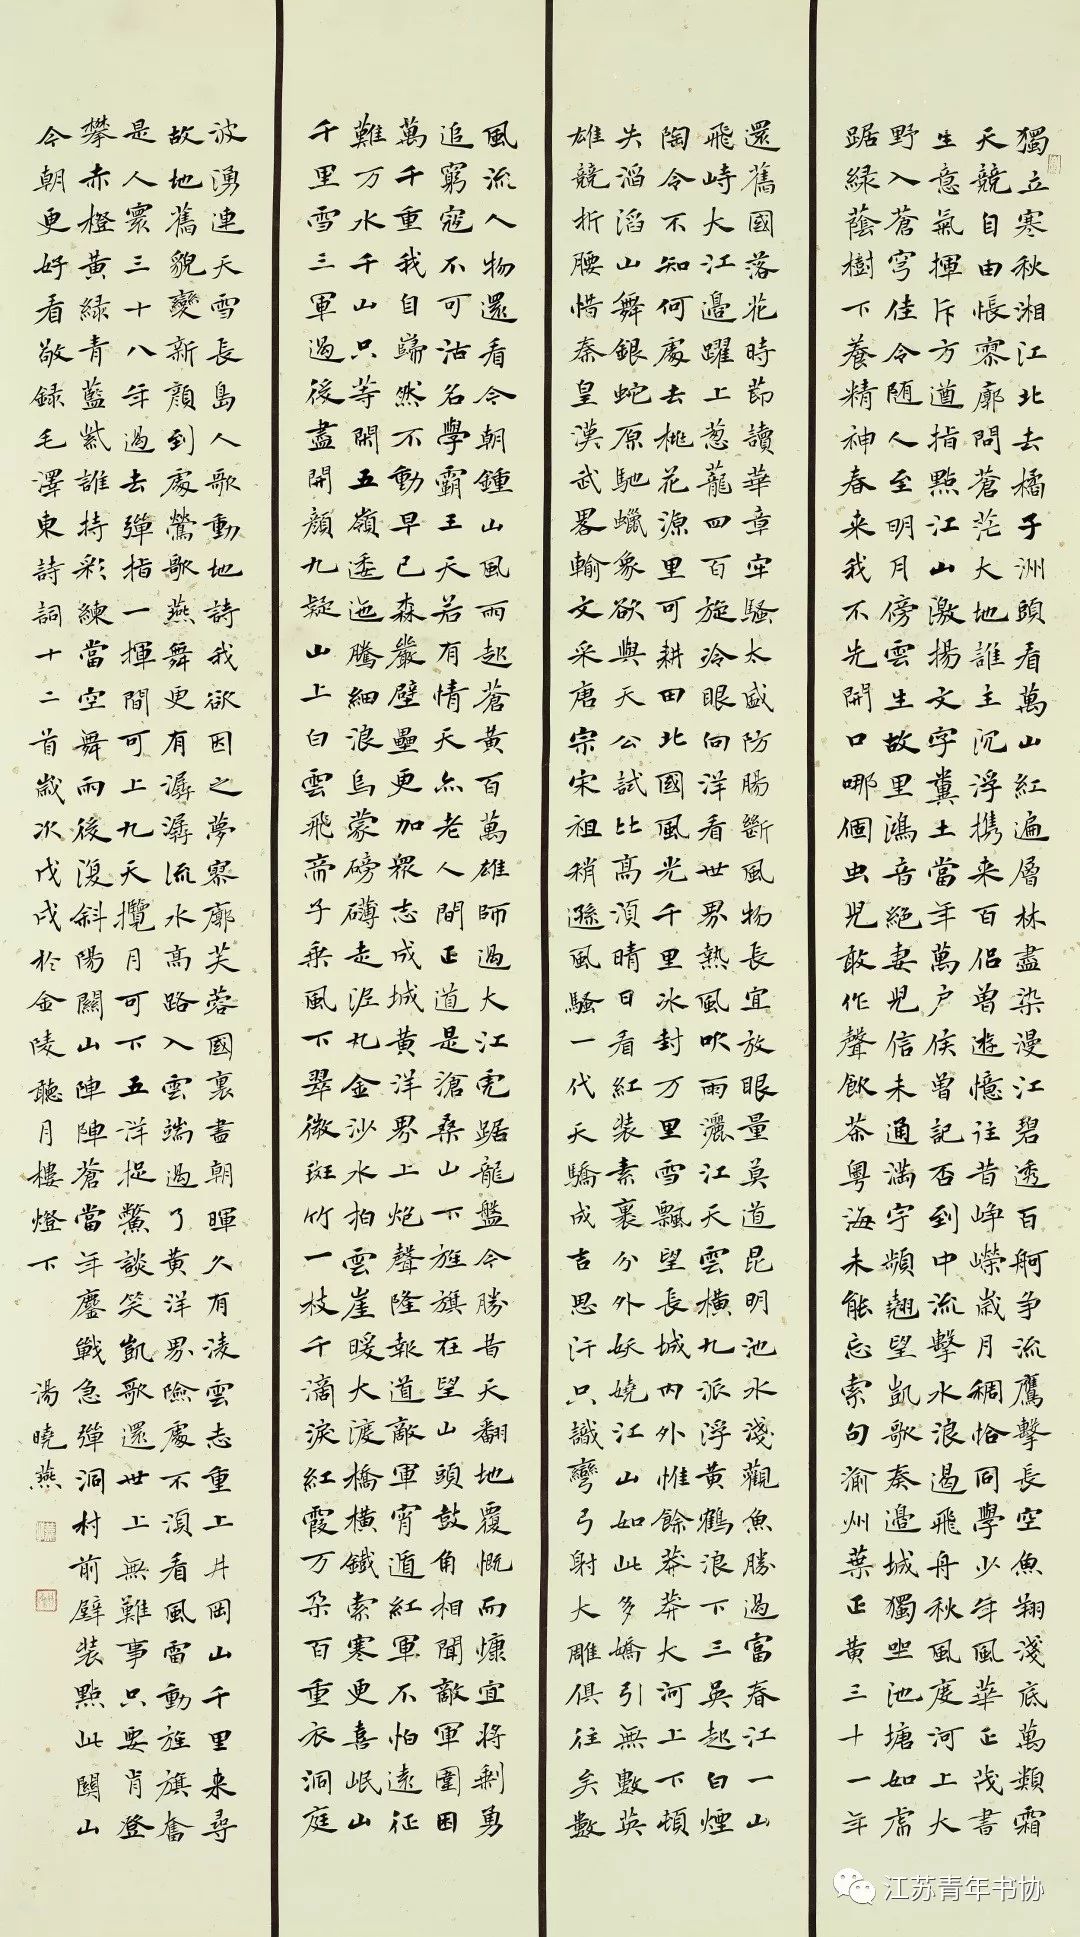 獨立寒秋湘江北去橘子洲頭看萬山紅遍層林盡染漫江碧透百舸争流鷹擊長空魚翔淺底萬類霜
天競自由悵寥廓問蒼茫大地誰主沉浮携来百侣曽遊憶往昔崢嶸歲月稠恰同學少年風華正茂書
生意氣揮斥方遒指點江山激揚文字糞土當年萬户侯曽記否到中流擊水浪遏飛舟秋風度河上大
野入蒼穹佳令随人至明月傍雲生故里鴻音絕妻兒信未通滿宇頻翹望凱歌奏邊城獨坐池塘如虎
踞緑蔭樹下養精神春来我不先開口哪個虫兒敢作聲飲茶粵海未能忘索句渝州葉正黄三十一年
還舊國落花時節讀華章牢騷太盛防腸斷風物長宜放眼量莫道昆明池水淺觀魚勝過富春江一山
飛峙大江邊躍上葱蘢四百旋冷眼向洋看世界熱風吹雨灑江天雲橫九派浮黄鶴浪下三吴起白煙
陶令不知何處去桃花源里可耕田北國風光千里冰封万里雪飄望長城内外惟餘莽莽大河上下頓
失滔滔山舞銀蛇原馳蠟象欲與天公試比高須晴日看紅装素裹分外妖嬈江山如此多嬌引無數英
雄競折腰惜秦皇漢武畧輸文采唐宗宋祖稍遜風騷一代天驕成吉思汗只識彎弓射大雕俱往矣數
風流人物還看今朝鍾山風雨起蒼黄百萬雄師過大江虎踞龍盤今勝昔天翻地覆慨而慷宜將剩勇
追窮寇不可沽名學霸王天若有情天亦老人間正道是滄桑山下旌旗在望山頭鼓角相聞敵軍圍困
萬千重我自巋然不動早已森嚴壁壘更加衆志成城黄洋界上炮聲隆報道敵軍宵遁紅軍不怕遠征
難万水千山只等閑五嶺逶迤騰細浪烏蒙磅礴走泥丸金沙水拍雲崖暖大渡橋橫鐵索寒更喜岷山
千里雪三軍過後盡開顔九疑山上白雲飛帝子乘風下翠微斑竹一枝千滴淚紅霞万朵百重衣洞庭
波湧連天雪長島人歌動地詩我欲因之夢寥廓芙蓉國裏盡朝暉久有凌雲志重上井岡山千里来尋
故地舊貌變新顔到處鶯歌燕舞更有潺潺流水高路入雲端過了黄洋界險處不須看風雷動旌旗奮
是人寰三十八年過去彈指一揮間可上九天攬月可下五洋捉鱉談笑凱歌還世上無難事只要肯登
攀赤橙黄緑青藍紫誰持彩練當空舞雨後復斜陽關山陣陣蒼當年鏖戰急彈洞村前壁装點此關山
今朝更好看敬録毛澤東詩詞十二首歲次戊戌於金陵聽月樓燈下 湯曉燕
江苏青年书协